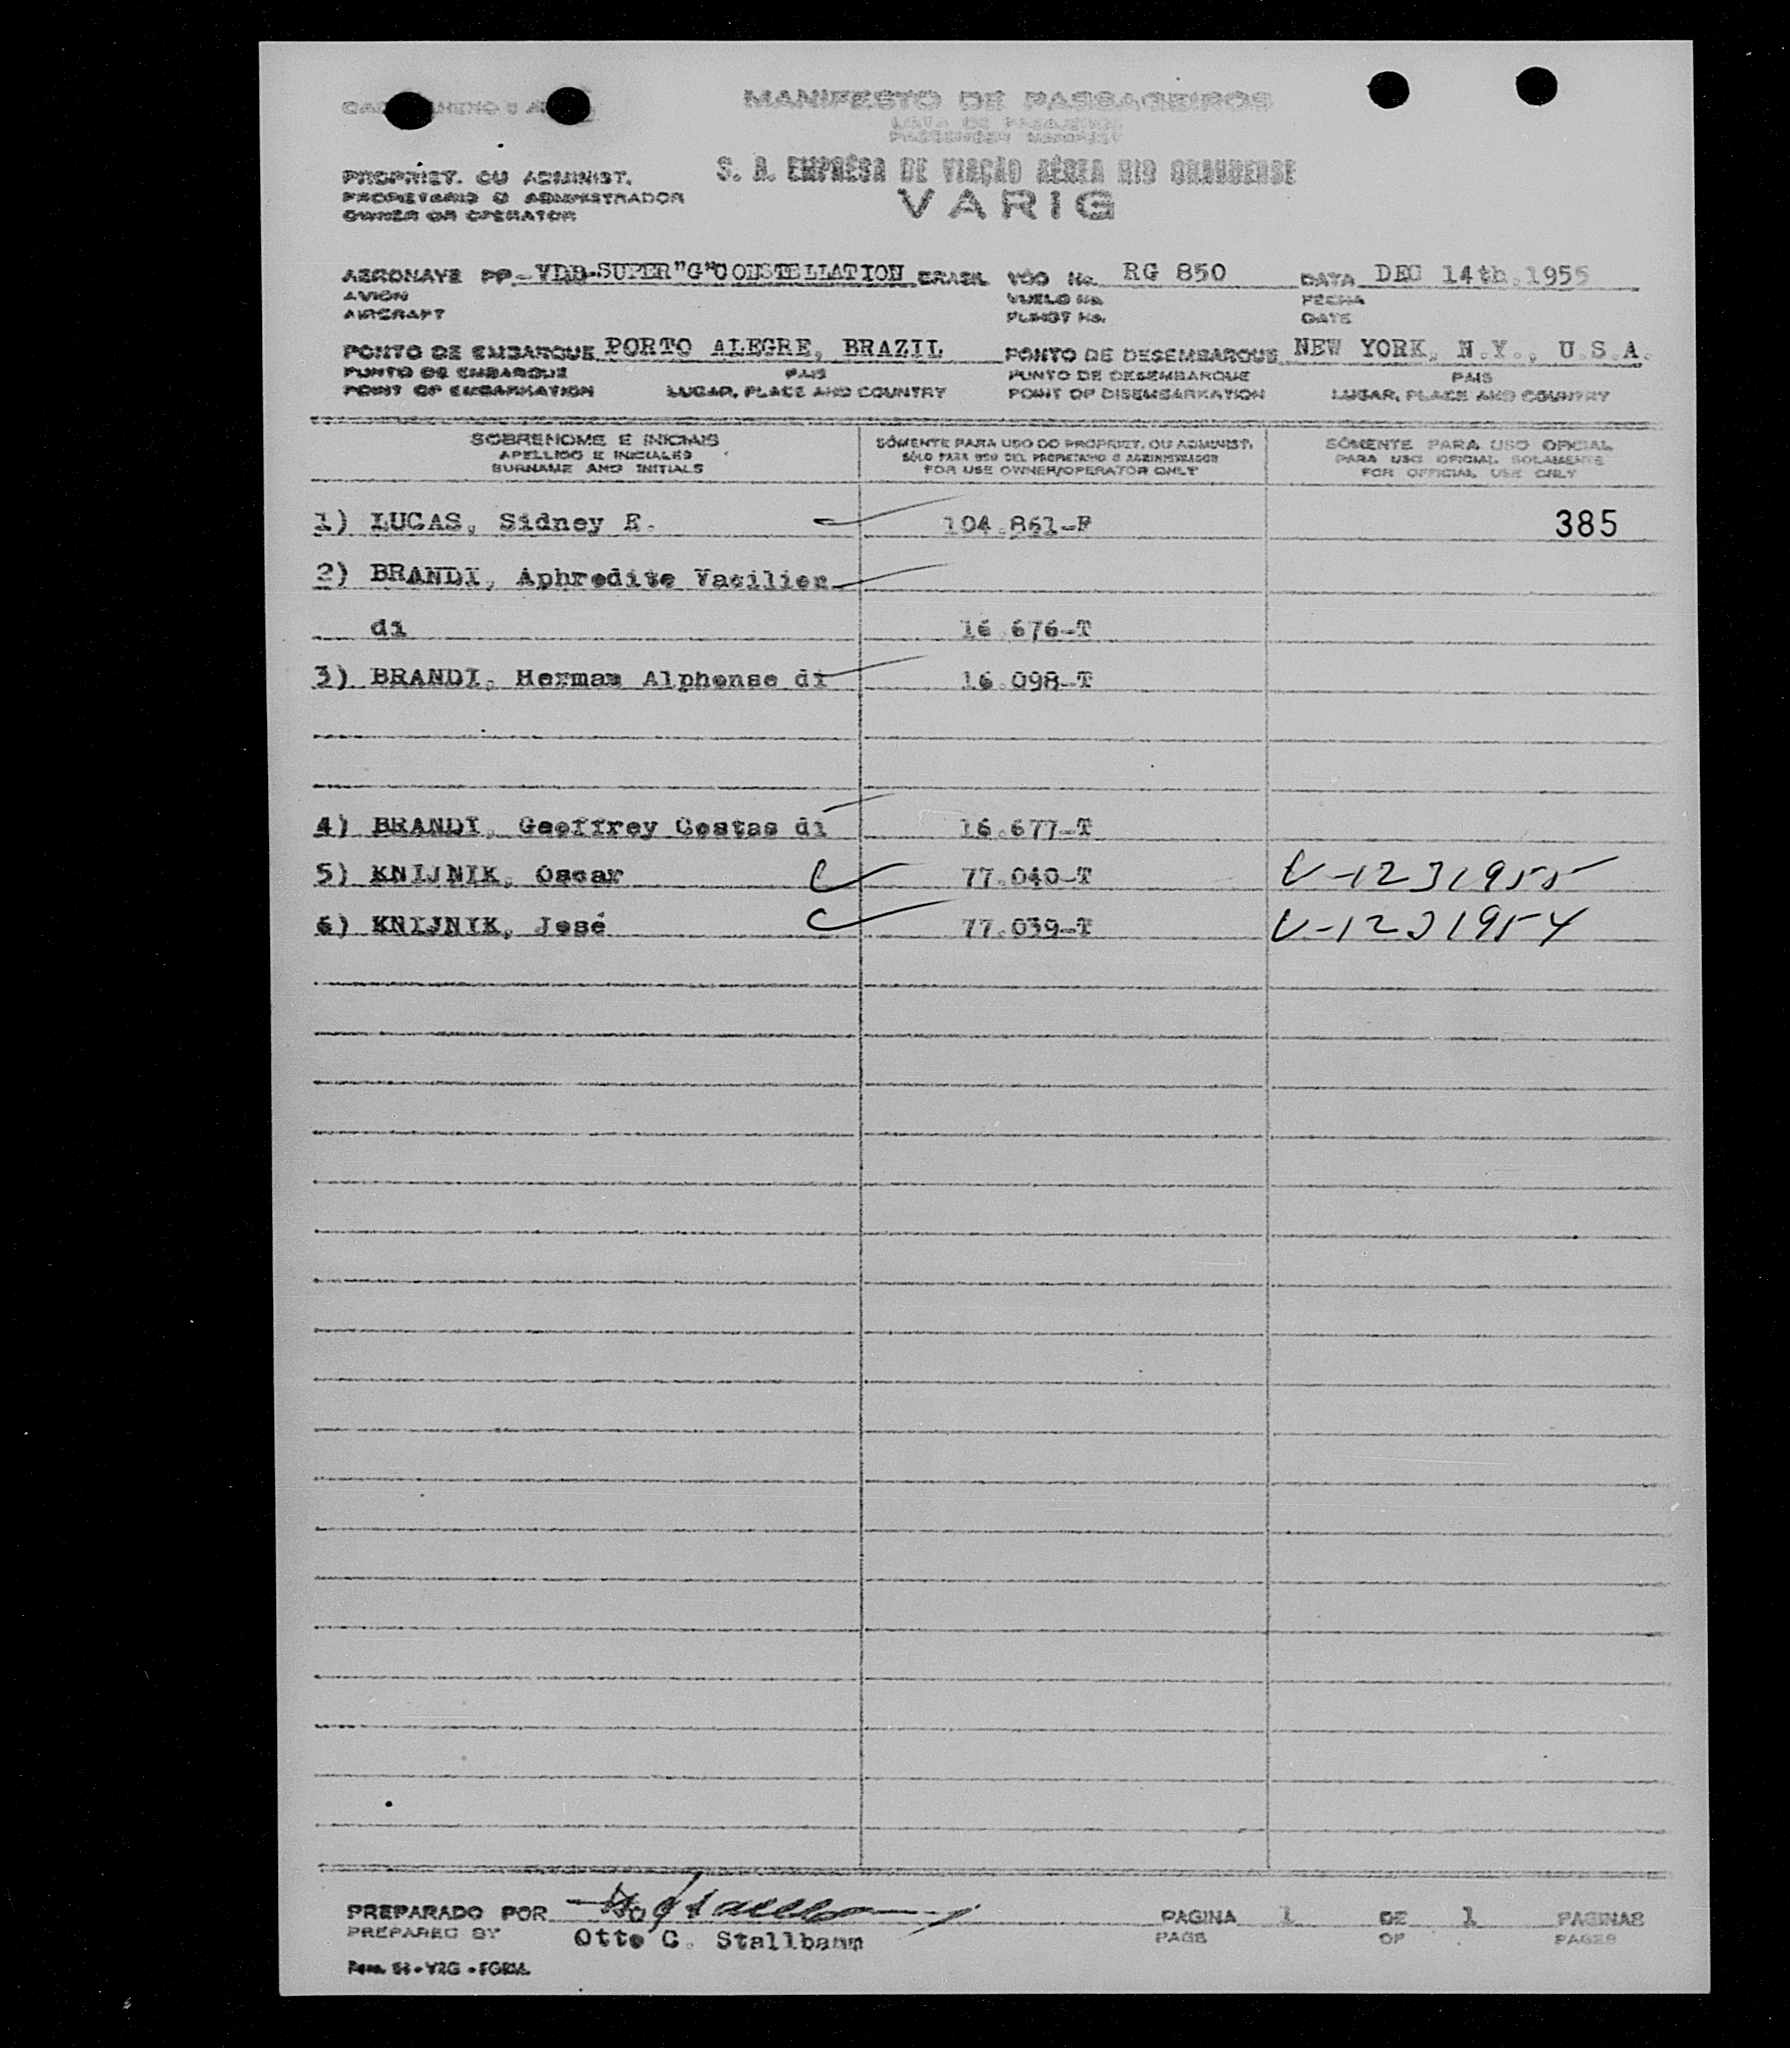 MANIFESTO DE PASSAGEIROS
LISTA DE PASAJEROS
PASSENGER MANIFEST
S. A. EMPRÊSA DE VIAÇÃO AÉREA RIO GRANDENSE
VARIG
PROPRIET. OU ADMINIST.
PROPIETARIO O ADMINISTRADOR
OWNER OR OPERATOR
AERONAVE PP-VDB-SUPER"G"CONSTELLATION BRASIL VÔO No. RG 850 DATA DEC 14th.1955
AVION VUELO No. FECHA
AIRCRAFT FLIGHT No. DATE
PONTO DE EMBARQUE PORTO ALEGRE, BRAZIL PONTO DE DESEMBARQUE NEW YORK, N.Y., U.S.A.
PUNTO DE EMBARQUE PAIS PUNTO DE DESEMBARQUE PAIS
POINT OF EMBARKATION LUGAR, PLACE AND COUNTRY POINT OF DISEMBARKATION LUGAR, PLACE AND COUNTRY
SOBRENOME E INICIAIS SÓMENTE PARA USO DO PROPRIET. OU ADMINIST. SÓMENTE PARA USO OFICIAL
APELLIDO E INICIALES SÓLO PARA USO DEL PROPIETARIO O ADMINISTRADOR PARA USO OFICIAL SOLAMENTE
SURNAME AND INITIALS FOR USE OWNER/OPERATOR ONLY FOR OFFICIAL USE ONLY
1) LUCAS, Sidney E. 104.861-F 385
2) BRANDI, Aphrodite Vacilios
di 16.676-T
3) BRANDI, Herman Alphonse di 16.098-T
4) BRANDI, Geoffrey Costas di 16.677-T
5) KNIJNIK, Oscar 77.040-T V-1231955
6) KNIJNIK, José 77.039-T V-1231954
PREPARADO POR PAGINA 1 DE 1 PAGINAS
PREPARED BY Otto C. Stallbaum PAGE OF PAGES